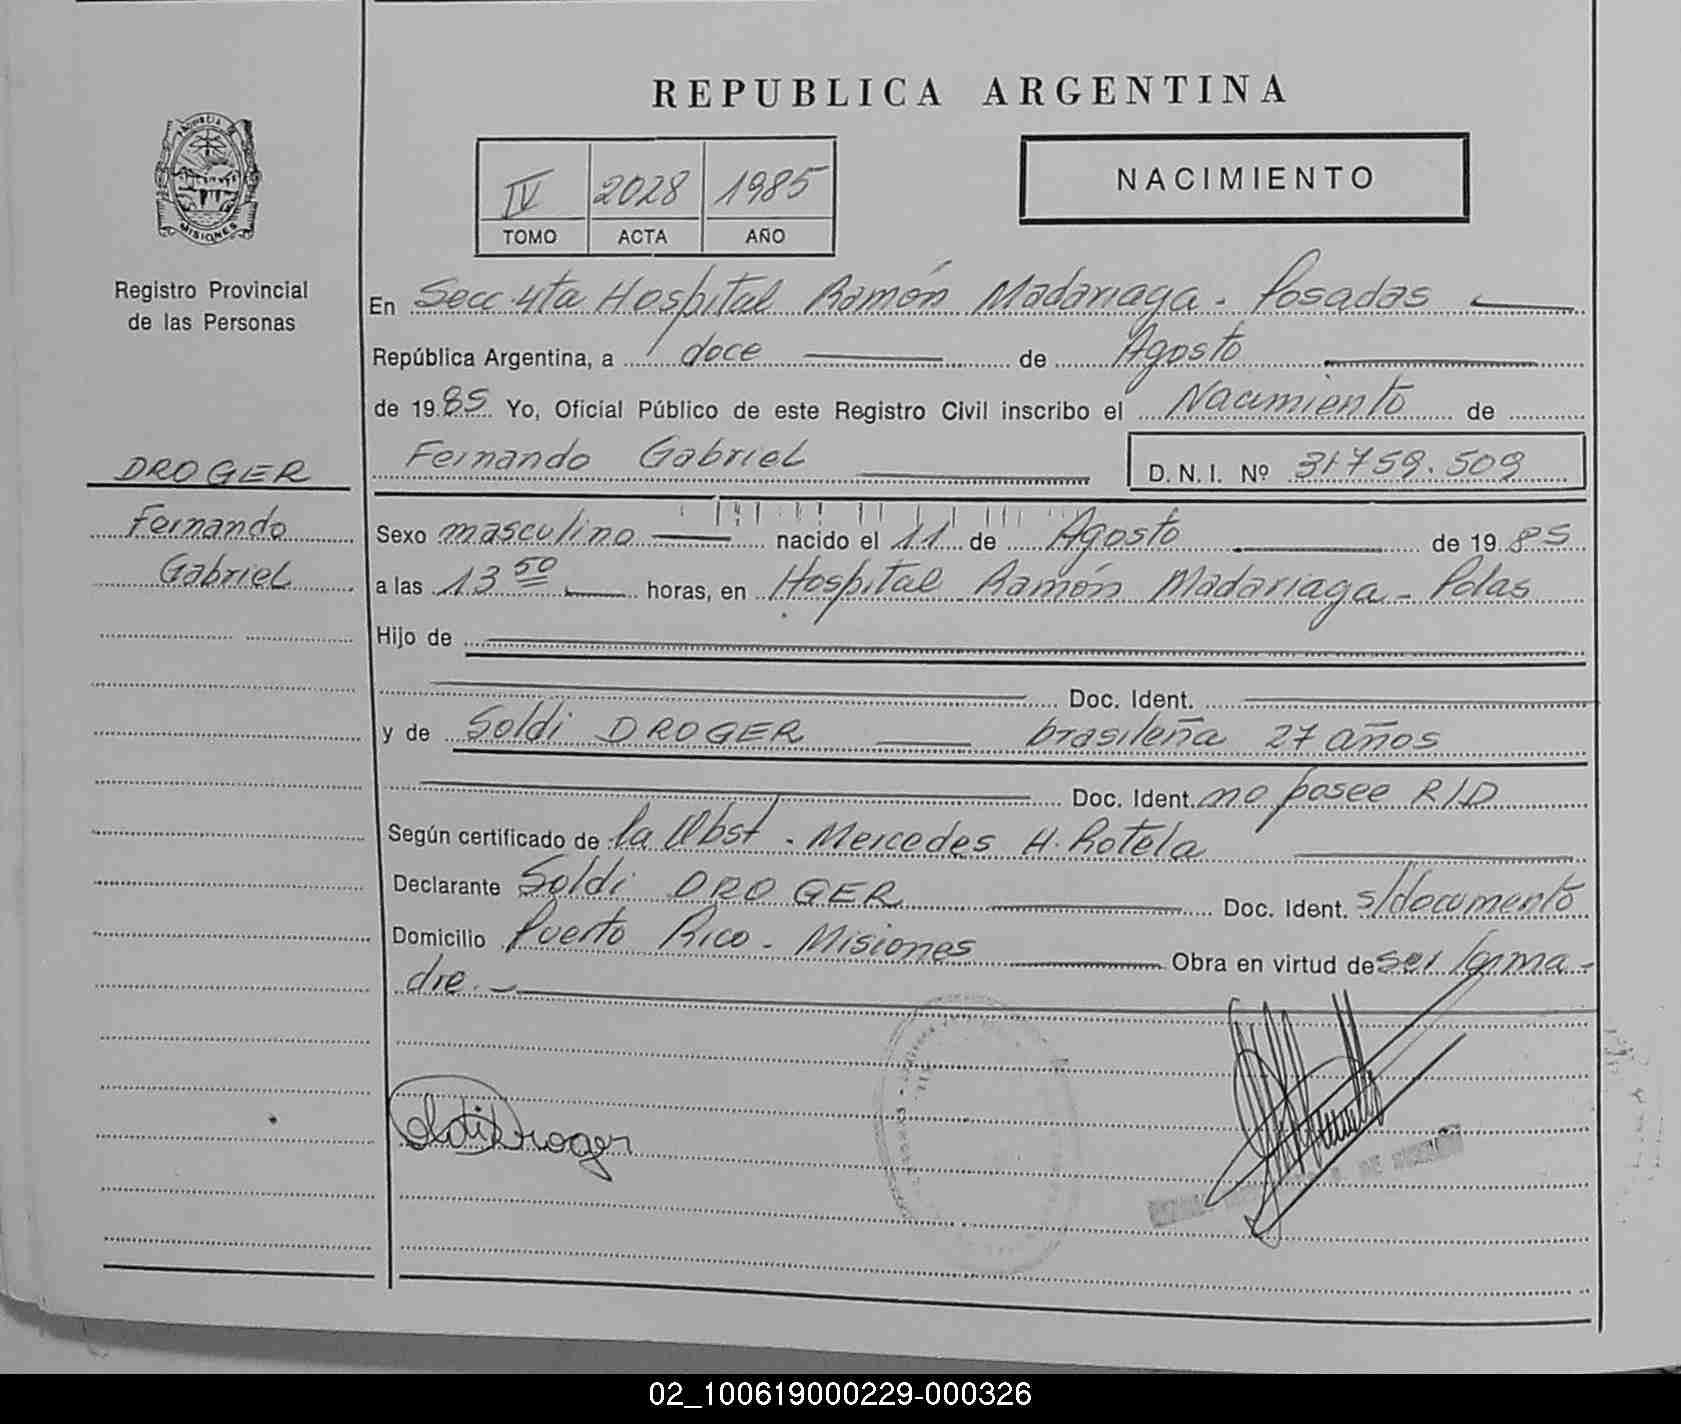 REPUBLICA ARGENTINA
PROVINCIA DE
MISIONES
Registro Provincial
de las Personas
IV 2028 1985
TOMO ACTA AÑO
NACIMIENTO
En Secc 4ta Hospital Ramón Madariaga - Posadas
República Argentina, a doce de Agosto
de 1985 Yo, Oficial Público de este Registro Civil inscribo el Nacimiento de
Fernando Gabriel D.N.I. Nº 31.759.509
DROGER
Fernando
Gabriel
Sexo masculino nacido el 11 de Agosto de 1985
a las 13 50 horas, en Hospital Ramón Madariaga - Pdas
Hijo de
Doc. Ident.
y de Soldi DROGER brasileña 27 años
Doc. Ident. no posee R/D
Según certificado de la Obst. Mercedes H. Rotela
Declarante Soldi DROGER Doc. Ident. s/documento
Domicilio Puerto Rico - Misiones Obra en virtud de ser la ma-
dre.
Droger
02_100619000229-000326